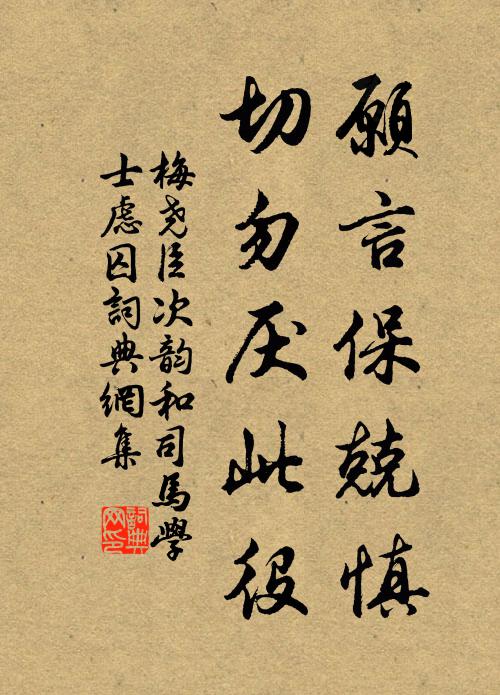 願言保兢慎
切勿厌此役
梅尧臣次韵和司馬學
士慮囚詞典網集
詞典
网印